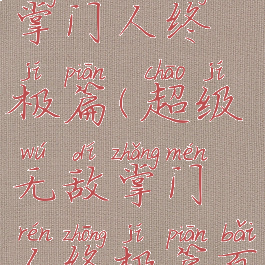 掌门人终
jí piān chāo jí
极篇(超级
wú dí zhǎng mén
无敌掌门
rén zhōng jí piān bǎi
人终极篇百